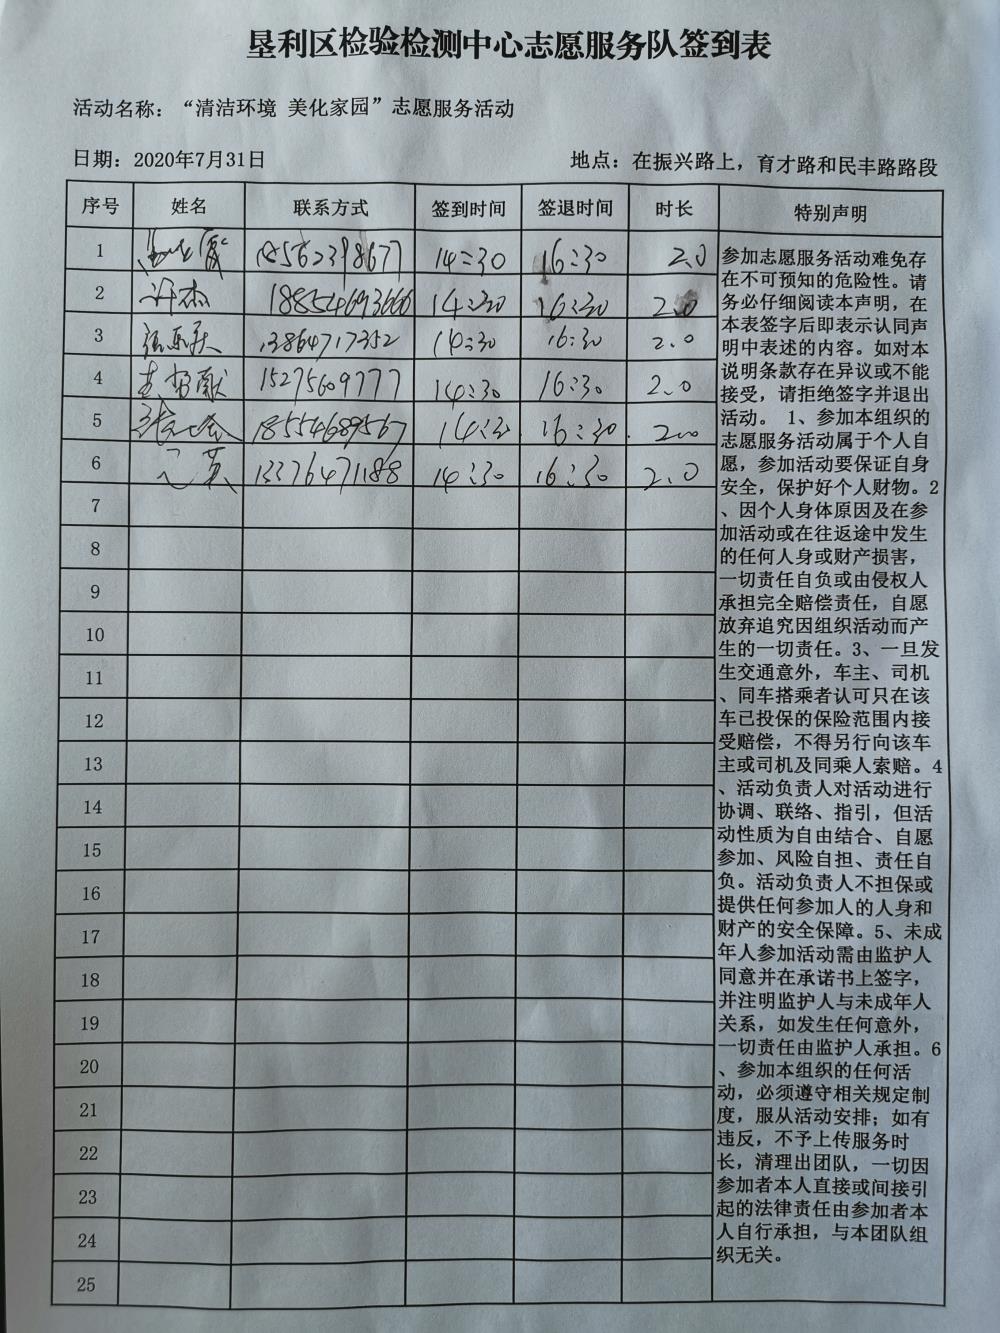 垦利区检验检测中心志愿服务队签到表
活动名称：“清洁环境 美化家园”志愿服务活动
日期：2020年7月31日 地点：在振兴路上，育才路和民丰路路段
序号 姓名 联系方式 签到时间 签退时间 时长 特别声明
1 14:30 16:30 2.0
2 许杰 18854693666 14:30 16:30 2.0
3 13864717352 14:30 16:30 2.0
4 15275609777 14:30 16:30 2.0
5 18554689567 14:30 16:30 2.0
6 13376471188 14:30 16:30 2.0
7
8
9
10
11
12
13
14
15
16
17
18
19
20
21
22
23
24
25
参加志愿服务活动难免存
在不可预知的危险性。请
务必仔细阅读本声明，在
本表签字后即表示认同声
明中表述的内容。如对本
说明条款存在异议或不能
接受，请拒绝签字并退出
活动。 1、参加本组织的
志愿服务活动属于个人自
愿，参加活动要保证自身
安全，保护好个人财物。2
、因个人身体原因及在参
加活动或在往返途中发生
的任何人身或财产损害，
一切责任自负或由侵权人
承担完全赔偿责任，自愿
放弃追究因组织活动而产
生的一切责任。3、一旦发
生交通意外，车主、司机
、同车搭乘者认可只在该
车已投保的保险范围内接
受赔偿，不得另行向该车
主或司机及同乘人索赔。4
、活动负责人对活动进行
协调、联络、指引，但活
动性质为自由结合、自愿
参加、风险自担、责任自
负。活动负责人不担保或
提供任何参加人的人身和
财产的安全保障。5、未成
年人参加活动需由监护人
同意并在承诺书上签字，
并注明监护人与未成年人
关系，如发生任何意外，
一切责任由监护人承担。6
、参加本组织的任何活
动，必须遵守相关规定制
度，服从活动安排；如有
违反，不予上传服务时
长，清理出团队，一切因
参加者本人直接或间接引
起的法律责任由参加者本
人自行承担，与本团队组
织无关。